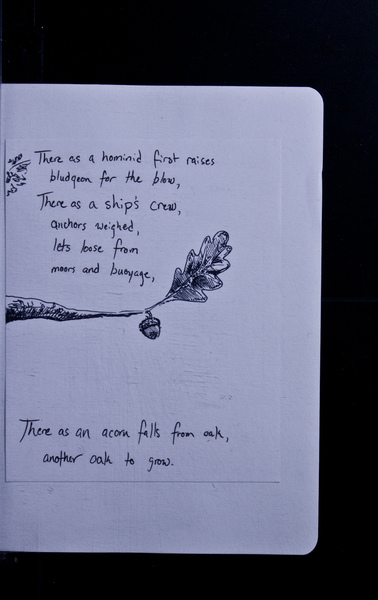 There as a hominid first raises
bludgeon for the blow,
There as a ship's crew,
anchors weighed,
lets loose from
moors and buoyage,
There as an acorn falls from oak,
another oak to grow.